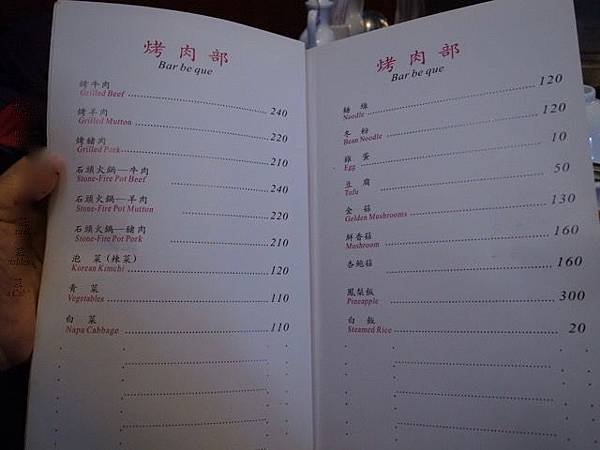 烤肉部
Bar be que
烤牛肉
Grilled Beef 240
烤羊肉
Grilled Mutton 220
烤豬肉
Grilled Pork 210
石頭火鍋—牛肉
Stone-Fire Pot Beef 240
石頭火鍋—羊肉
Stone-Fire Pot Mutton 220
石頭火鍋—豬肉
Stone-Fire Pot Pork 210
泡 菜(辣菜)
Korean Kimchi 120
青 菜
Vegetables 110
白 菜
Napa Cabbage 110
烤肉部
Bar be que
Noodle 120
冬 粉
Bean Noodle 120
雞 蛋
Egg 10
豆 腐
Tofu 50
金 菇
Golden Mushrooms 130
鮮香菇
Mushroom 160
杏鮑菇 160
鳳梨飯
Pineapple 300
白 飯
Steamed Rice 20